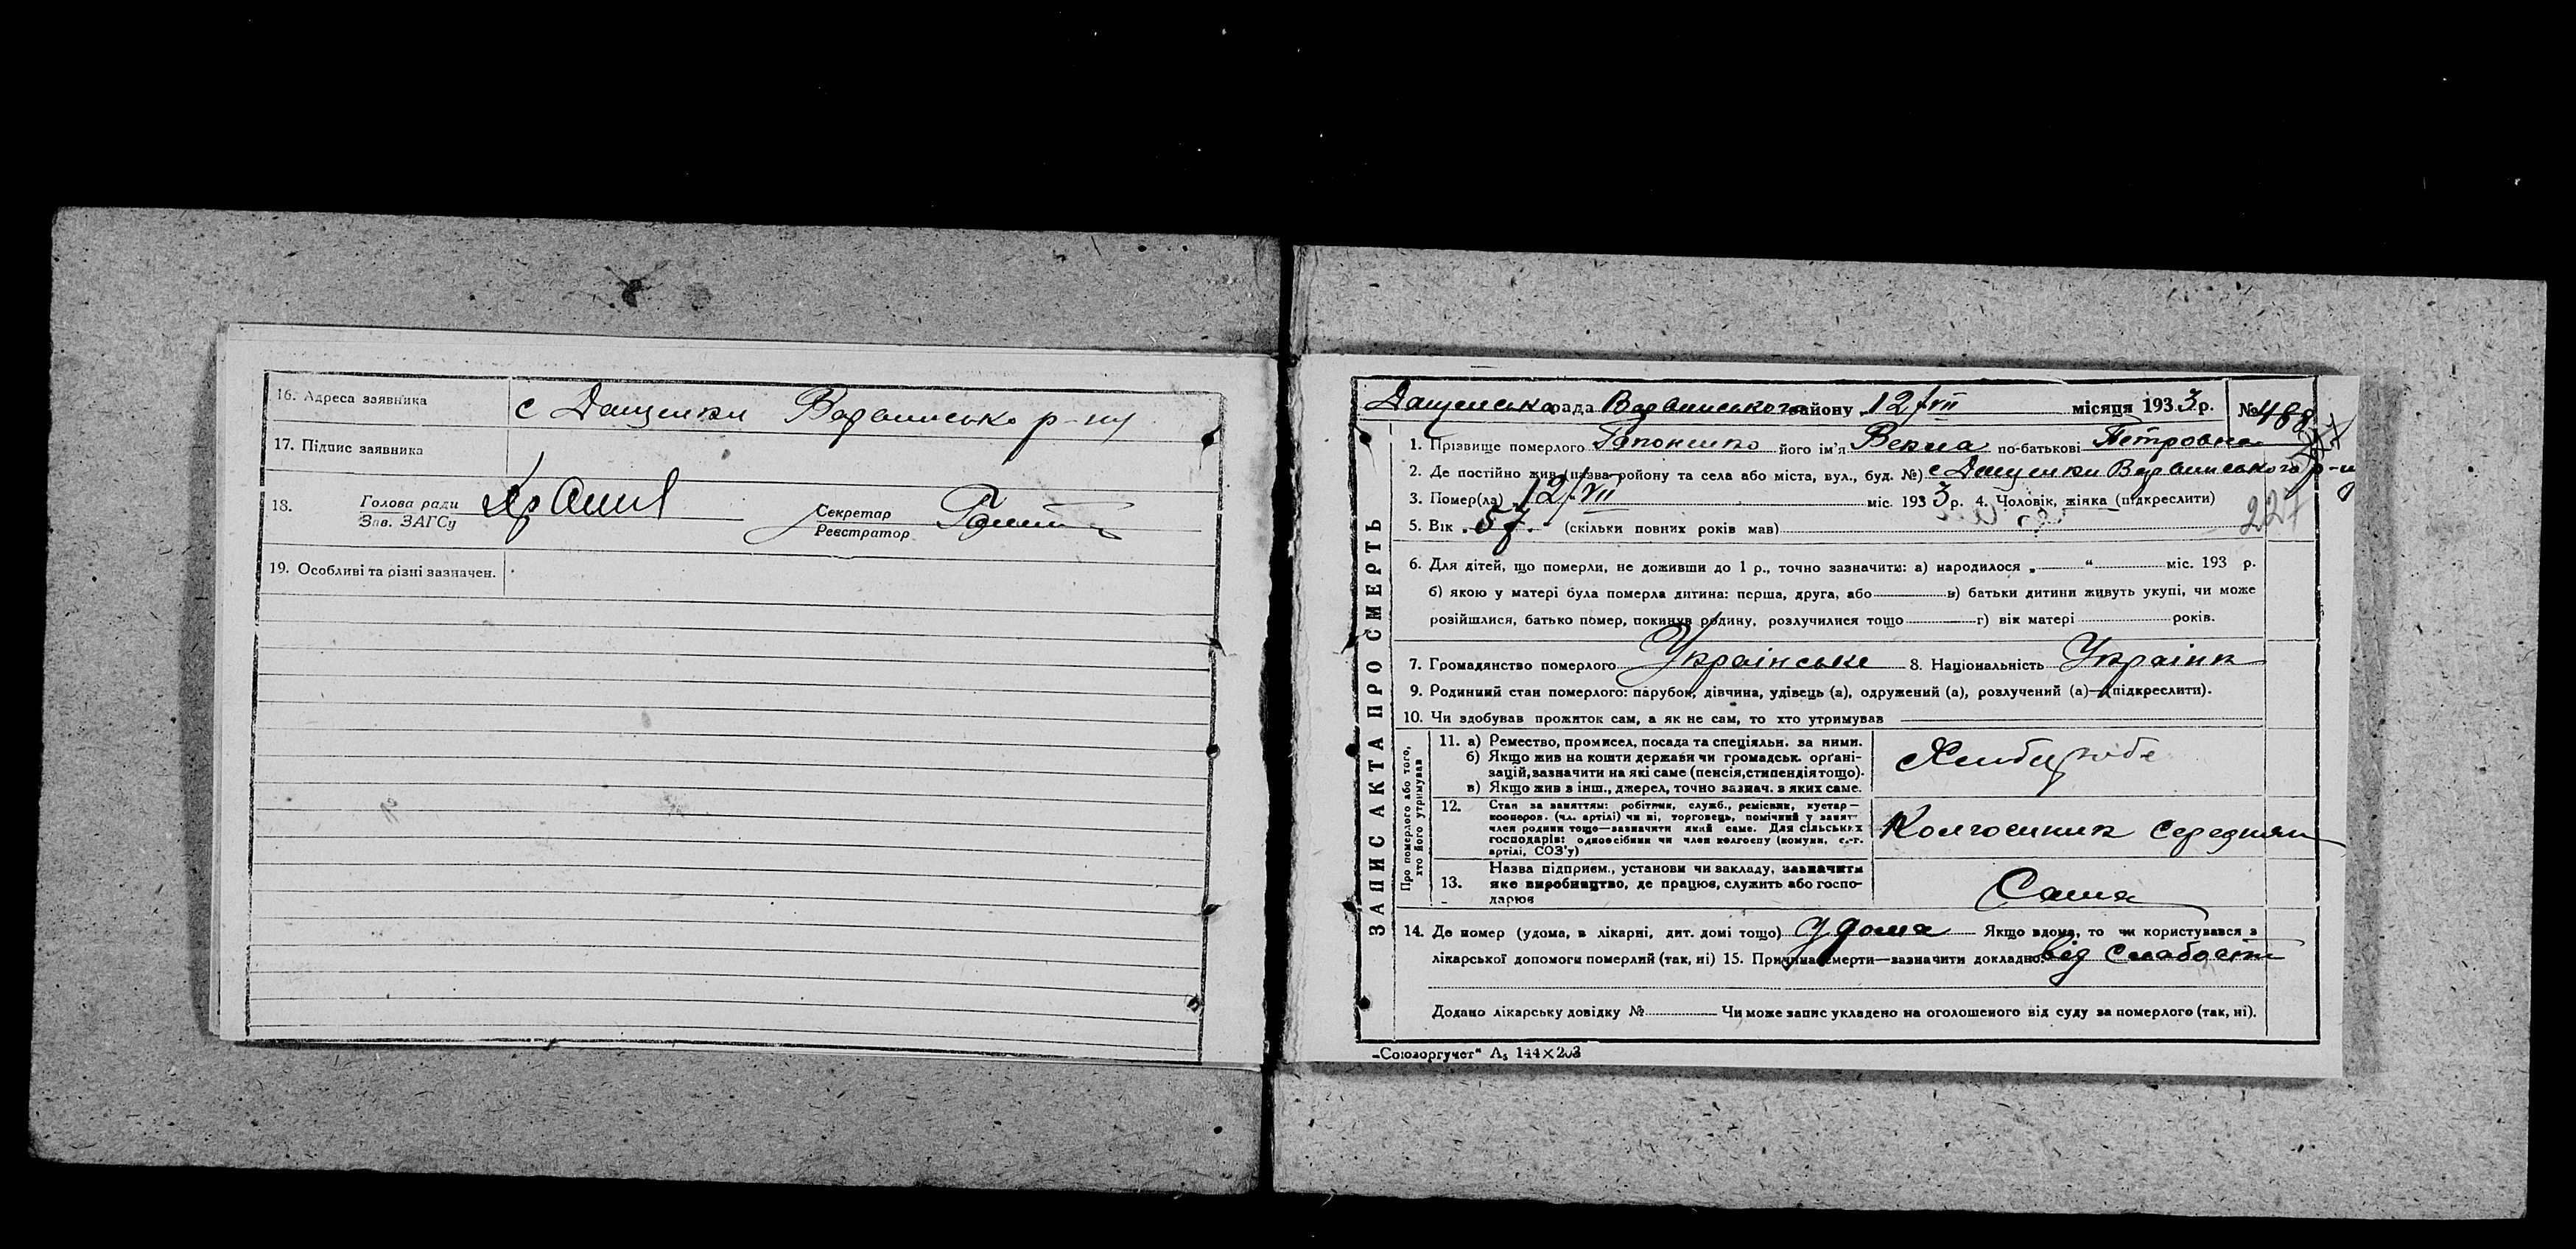 16. Адреса заявника с Дащенки Варвинсько р-ну
17. Підпис заявника
18. Голова ради
Зав. ЗАГСу
Секретар
Реєстратор
19. Особливі та різні зазначен.
ЗАПИС АКТА ПРО СМЕРТЬ
Дащенсько рада Варвинського району 12/VII місяця 1933 р. № 488
1. Прізвище померлого Гапоненко його ім'я Векла по-батькові Петровна
2. Де постійно жив (назва району та села або міста, вул., буд. №) с Дащенки Варвинського р-ну
3. Помер(ла) 12/VII міс. 1933 р. 4. Чоловік, жінка (підкреслити)
227
5. Вік 57. (скільки повних років мав)
6. Для дітей, що померли, не доживши до 1 р., точно зазначити: а) народилося „ “ міс. 193 р.
б) якою у матері була померла дитина: перша, друга, або в) батьки дитини живуть укупі, чи може
розійшлися, батько помер, покинув родину, розлучилися тощо г) вік матері років.
7. Громадянство померлого Українське 8. Національність Українк
9. Родинний стан померлого: парубок, дівчина, удівець (а), одружений (а), розлучений (а)—(підкреслити).
10. Чи здобував прожиток сам, а як не сам, то хто утримував
Про померлого або того, хто його утримував
11. а) Ремество, промисел, посада та спеціяльн. за ними.
б) Якщо жив на кошти держави чи громадськ. орґані-
зацій, зазначити на які саме (пенсія, стипендія тощо).
в) Якщо жив з інш., джерел, точно зазнач. з яких саме.
Хлібороб
12. Стан за заняттям: робітник, служб., ремісник, кустар—
кооперов. (чл. артілі) чи ні, торговець, помічний у занят-
член родини тощо—зазначити який саме. Для сільських
господарів: одноосібник чи член колгоспу (комуни, с.-г.
артілі, СОЗ'у)
Колгоспник середняк
13. Назва підприєм., установи чи закладу, зазначити
яке виробництво, де працює, служить або госпо-
дарює
Сама
14. Де помер (удома, в лікарні, дит. домі тощо) У дома Якщо вдома, то чи користувався з
лікарської допомоги померлий (так, ні) 15. Причина смерти—зазначити докладно: від Слабости
Додано лікарську довідку № Чи може запис укладено на оголошеного від суду за померлого (так, ні).
„Союзоргучет“ А₅ 144×203